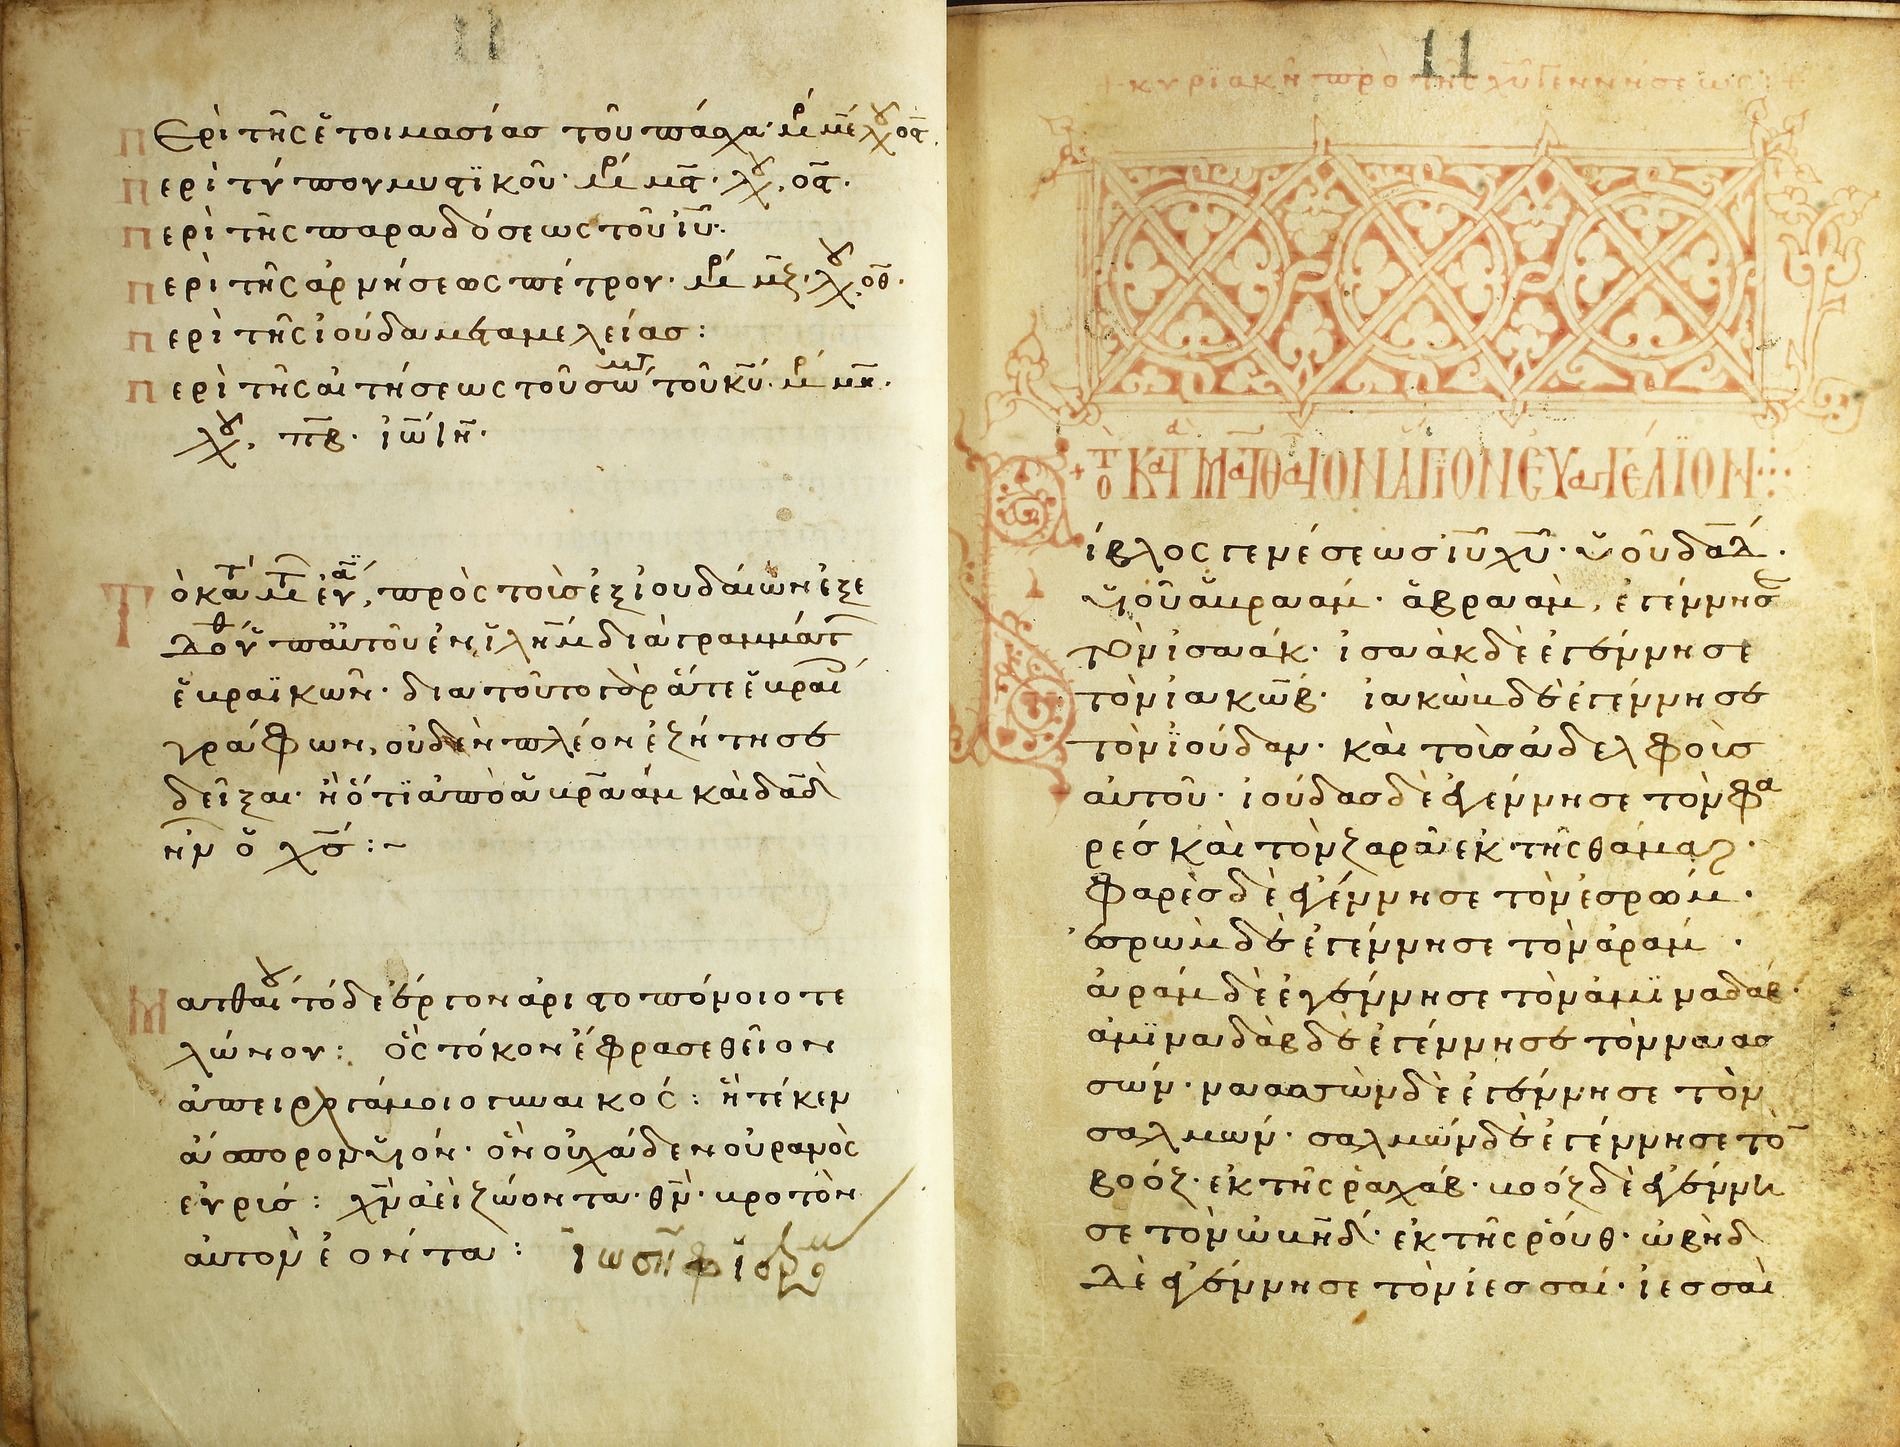 11
Περὶ τῆς ἑτοιμασίας τοῦ πάσχα·
περὶ τύπου μυστϊκοῦ·
περὶ τῆς παραδόσεως τοῦ ἰυ̅·
περὶ τῆς ἀρνήσεως πέτρου·
περὶ τῆς ἰούδα μεταμελείας:
περὶ τῆς αἰτήσεως τοῦ σώμτ τοῦ κυ̅·
πβ̅· ἰω̅ ιη̅·
Τὸ κατ μτ εὐα, πρὸς τοῖσ ἐξ ἰουδαίων ἐξε
δόθη ὑπ αὐτοῦ ἐν ἱλη̅μ διὰ γραμμάτ
ἑβραϊκῶν· δια τοῦτο γὰρ ἅτε ἑβραί
γράφων, οὐδὲν πλέον ἐζήτησε
δεῖξαι· ἢ ὅτϊ ἀπὸ ἀβρααμ καὶ δαδ̅
ἦν ὁ χσ̅:~
Ματθαί τόδε ἔργον ἀριστοπόνοιο τε
λώνου: ὃς τόκον ἔφρασε θεῖον
ἀπειρογάμοιο γυναικός: ἣ τέκεν
ἄσπορον υἱόν· ὃν οὐχάδεν οὐρανὸς
εὐρίσ: χν̅ ἀεὶ ζώοντα· θν̅· βροτὸν
αὐτὸν ἐόντα: ἰωσὴφ
11
+ κυρϊακῆ πρὸ τῆς χυ̅ γεννήσεως: +
+ τὸ ΚΑΤ ΜΑΤΘΑΙΟΝ ΑΓΙΟΝ ΕΥΑΓΓΕΛΙΟΝ
Βίβλος γενέσεως ἰυ̅ χυ̅· υἱοῦ δαδ̅·
υἱοῦ ἀβραάμ· ἀβραὰμ, ἐγέννησ
τὸν ἰσαάκ· ἰσαὰκ δὲ ἐγέννησε
τὸν ἰακώβ· ἰακὼβ δὲ ἐγέννησε
τὸν ἰούδαν· καὶ τοὺσ ἀδελφοὺσ
αὐτοῦ· ἰούδασ δὲ ἐγέννησε τὸν φα
ρέσ καὶ τὸν ζαρᾶ ἐκ τῆς θάμαρ·
φαρὲσ δὲ ἐγέννησε τὸν ἐσρώμ·
ἐσρὼμ δὲ ἐγέννησε τὸν ἀράμ·
ἀράμ δὲ ἐγέννησε τὸν ἀμϊναδάβ·
ἀμϊναδὰβ δὲ ἐγέννησε τὸν ναασ
σών· ναασσὼν δὲ ἐγέννησε τὸν
σαλμών· σαλμὼν δὲ ἐγέννησε τὸ̅
βοόζ· ἐκ τῆς ῥαχάβ· βοόζ δὲ ἐγέννη
σε τὸν ὠβήδ· ἐκ τῆς ῥούθ· ὠβὴδ
δὲ ἐγέννησε τὸν ἰεσσαί· ἰεσσαὶ